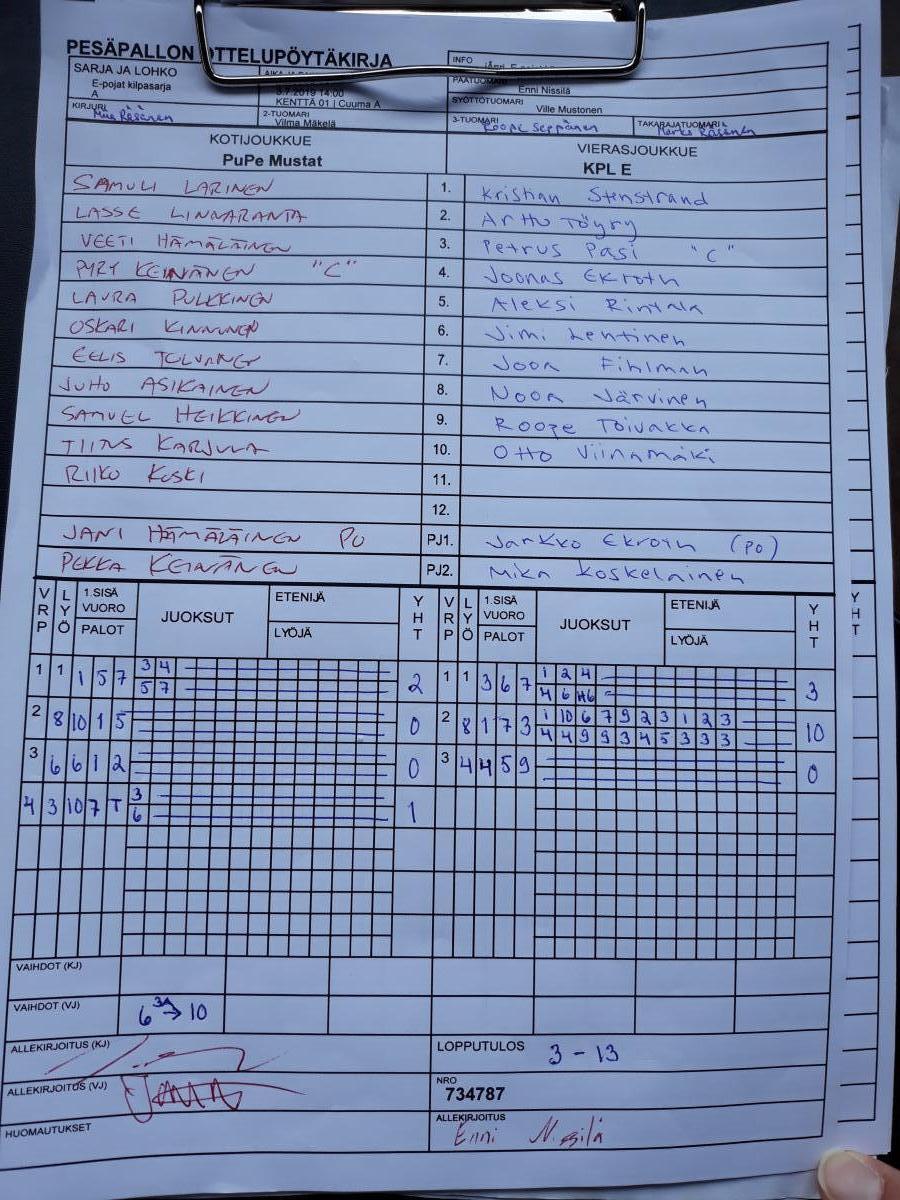 PESÄPALLON OTTELUPÖYTÄKIRJA
SARJA JA LOHKO
E-pojat kilpasarja
A
3.7.2019 14:00
KENTTÄ 01 | Cuuma A
INFO
PÄÄTUOMARI
Enni Nissilä
SYÖTTÖTUOMARI
Ville Mustonen
KIRJURI
Miia Räsänen
2-TUOMARI
Vilma Mäkelä
3-TUOMARI
Roope Seppänen
TAKARAJATUOMARI
Marko Räsänen
KOTIJOUKKUE VIERASJOUKKUE
PuPe Mustat KPL E
SAMULI LARINEN 1. Kristian Stenstrand
LASSE LINNARANTA 2. Arttu Töyry
VEETI HÄMÄLÄINEN 3. Petrus Pasi "C"
PYRY KEINÄNEN "C" 4. Joonas Ekroth
LAURA PULKKINEN 5. Aleksi Rintala
OSKARI KINNUNEN 6. Jimi Lehtinen
EELIS TOLVANEN 7. Joon Fihlman
JUHO ASIKAINEN 8. Noon Järvinen
SAMUEL HEIKKINEN 9. Roope Toivakka
TIITUS KARJULA 10. Otto Viinamäki
RIIKO KOSKI 11.
12.
JANI HÄMÄLÄINEN PO PJ1. Jarkko Ekroth (PO)
PEKKA KEINÄNEN PJ2. Mika Koskelainen
VRP LYÖ 1.SISÄ VUORO PALOT JUOKSUT ETENIJÄ LYÖJÄ YHT VRP LYÖ 1.SISÄ VUORO PALOT JUOKSUT ETENIJÄ LYÖJÄ YHT
1 1 1 5 7 3 4 2 1 1 3 6 7 1 2 4 3
5 7 4 6 H6
2 8 10 1 5 0 2 8 1 7 3 1 10 6 7 9 2 3 1 2 3 10
4 4 9 9 3 4 5 3 3 3
3 6 6 1 2 0 3 4 4 5 9 0
4 3 10 7 T 3 1
6
VAIHDOT (KJ)
VAIHDOT (VJ) 6 → 10
ALLEKIRJOITUS (KJ)
LOPPUTULOS 3 - 13
ALLEKIRJOITUS (VJ)
NRO
734787
HUOMAUTUKSET
ALLEKIRJOITUS
Enni Nissilä